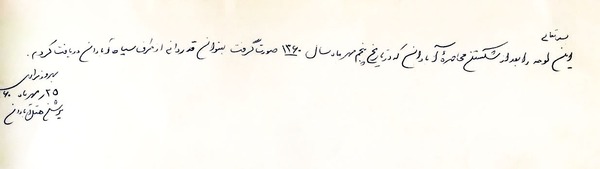 بسمه تعالی
این لوحه را بعد از شکستن محاصرهٔ آبادان که در تاریخ پنجم مهرماه سال ۱۳۶۰ صورت گرفت بعنوان قدردانی از طرف سپاه آبادان دریافت کردم.
بهروز مرادی
۲۵ مهرماه ۶۰
پرشن هتل آبادان